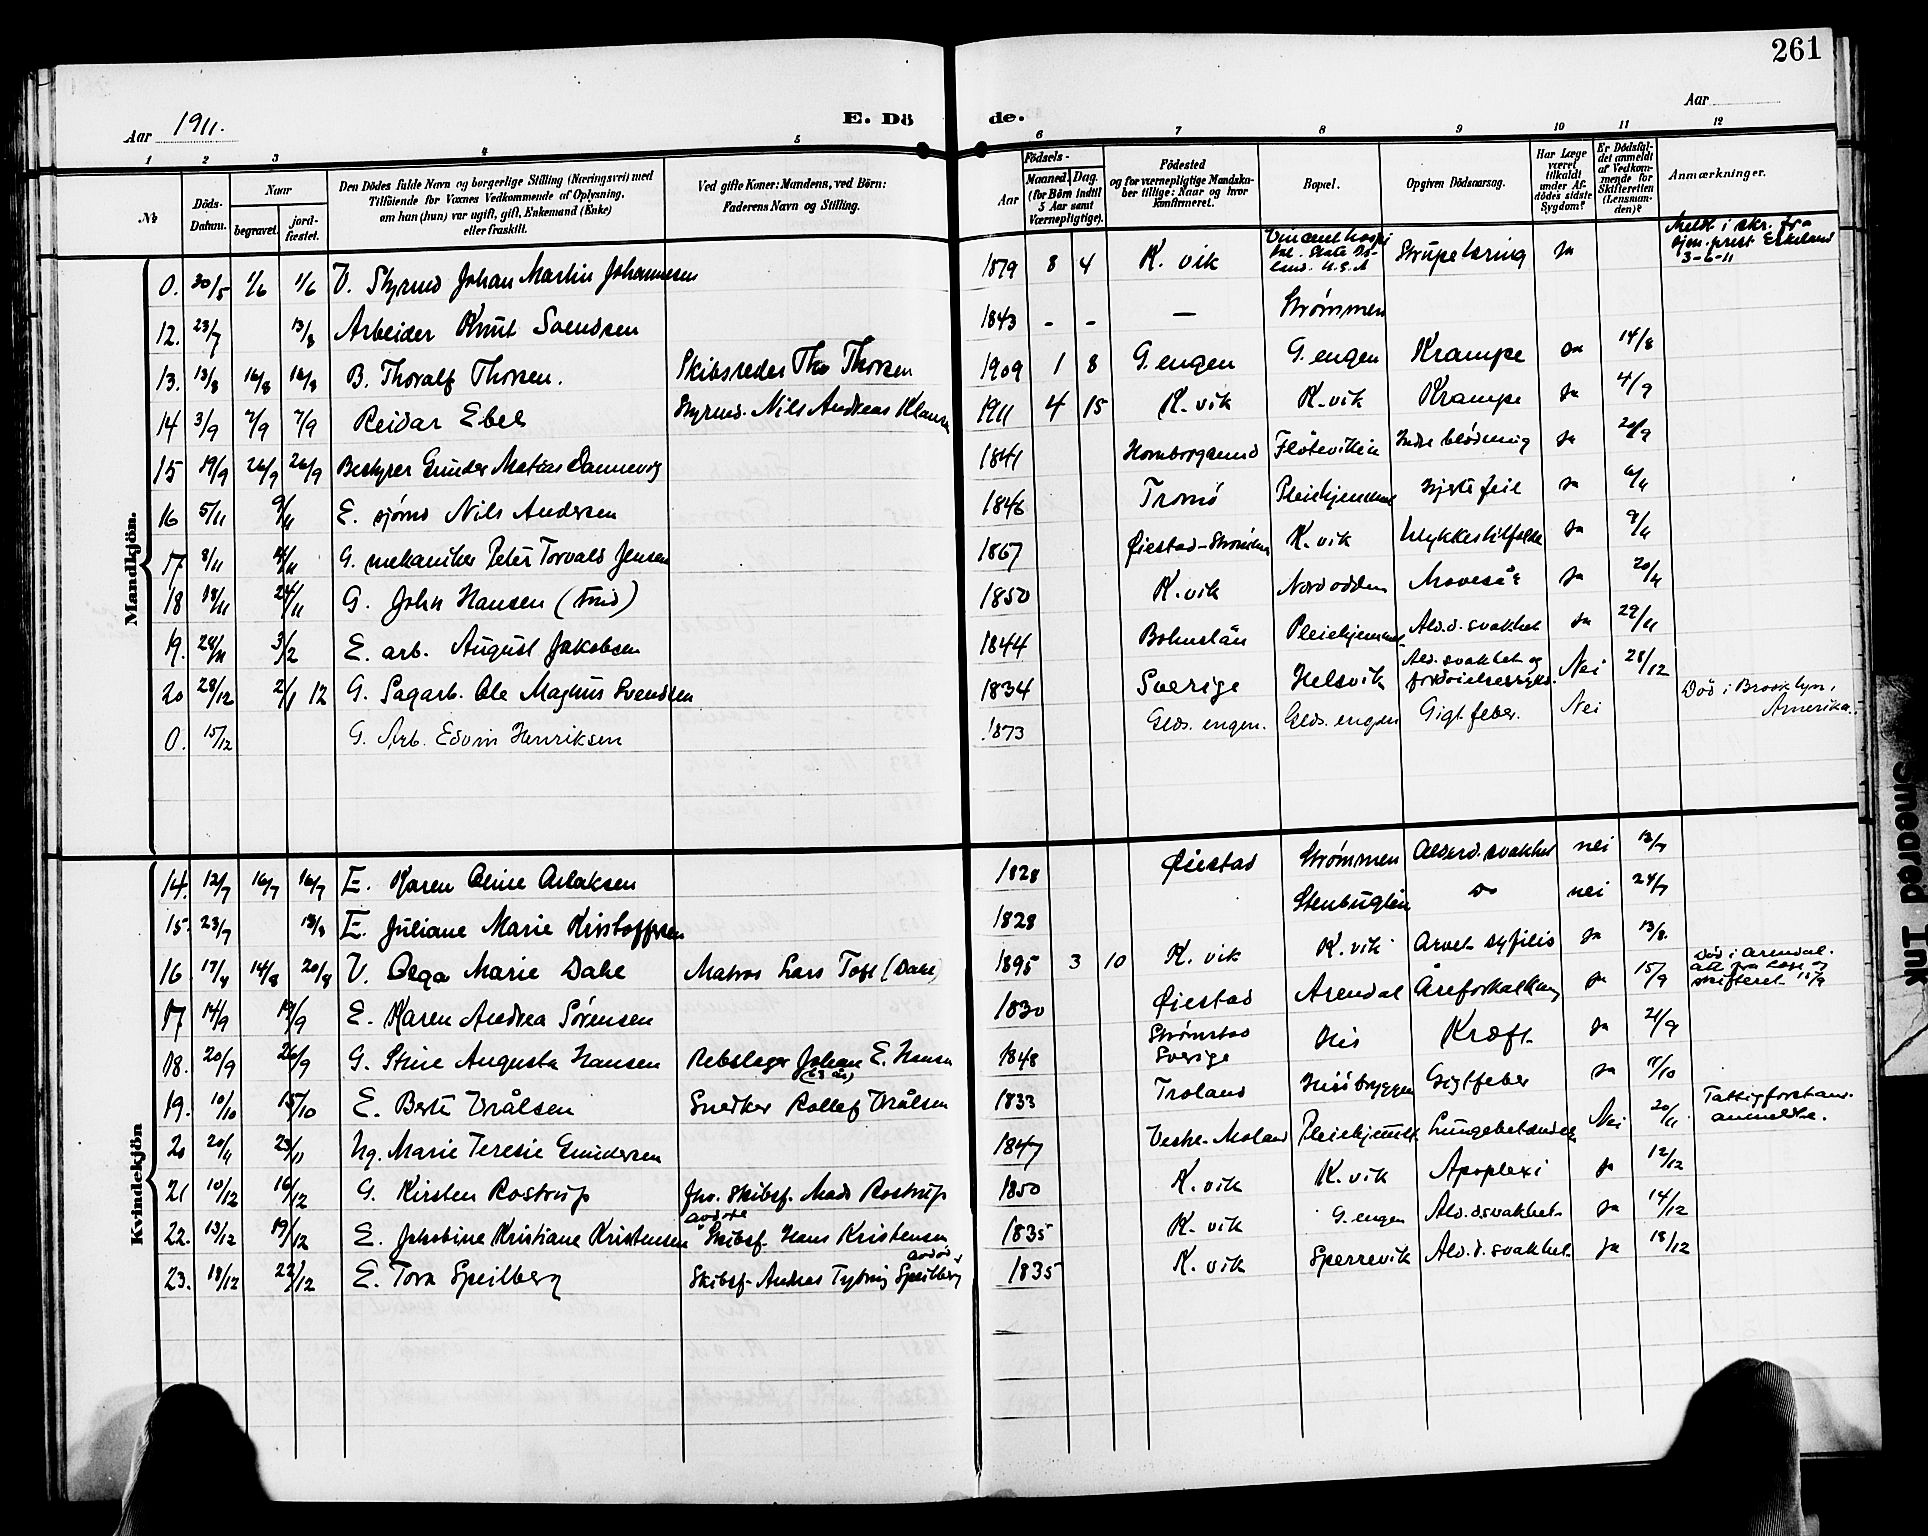 261
Aar 1911.
E. Dö de.
Aar
1 2 3 4 5 6 7 8 9 10 11 12
№
Döds-Datum.
Naar
begravet.
jord-fæstet.
Den Dödes fulde Navn og borgerlige Stilling (Næringsvei) med Tilföiende for Voxnes Vedkommende af Oplysning, om han (hun) var ugift, gift, Enkemand (Enke) eller fraskilt.
Ved gifte Koner: Mandens, ved Börn: Faderens Navn og Stilling.
Födsels-
Aar
Maaned. Dag.
(for Börn indtil 5 Aar samt Værnepligtige).
Födested og for værnepligtige Mandskaber tillige: Naar og hvor konfirmeret.
Bopæl.
Opgiven Dödsaarsag.
Har Læge været tilkaldt under Afdödes sidste Sygdom?
Er Dödsfaldet anmeldt af Vedkommende for Skifteretten (Lensmanden)?
Anmærkninger.
Mandkjön.
0. 30/5 1/6 1/6 U. Styrmd Johan Martin Johannesen 1879 8 4 K. vik Vincent hospital. U.S.A Strupetæring ja Meldt i skr. fra sjm. prest Eskeland 3-6-11
12. 23/7 13/8 Arbeider Knut Svendsen 1843 - - — Strømmen
13. 13/8 16/8 16/8 B. Thoralf Thorsen. Skibsreder Tho Thorsen 1909 1 8 G. engen G. engen Krampe ja 14/8
14 3/9 7/9 7/9 Reidar Ebel Styrmd. Nils Andreas Klausen 1911 4 15 K. vik K. vik Krampe ja 4/9
15 19/9 26/9 26/9 Bestyrer Gunder Matias Dannevig 1841 Homborgsund Fløtevikin Indre blødning ja 20/9
16 5/11 9/11 E. sjømd Nils Andersen 1846 Tromø Pleiehjemmet Hjertefeil ja 6/11
17 8/11 14/11 G. mekaniker Peter Torvald Jensen 1867 Øiestad-Strømmen K. vik Ulykkestilfælde ja 9/11
18 18/11 24/11 G. John Hansen 1850 K. vik Nordodden Mavesår ja 20/11
19. 28/11 3/2 E. arb. August Jakobsen 1844 Bohuslän Pleiehjemmet Ald.d. svakhet ja 29/11
20 28/12 2/1 12 G. Sagarb. Ole Magnus Svendsen 1834 Sverige Helsvik Ald. svakhet og Nei 28/12
0. 15/12 G. Arb. Edvin Henriksen 1873 Glds. engen. Glds. engen Gigtfeber. Nei Død i Brooklyn, Amerika.
Kvindekjön
14. 12/7 16/7 16/7 E. Karen Oline Aslaksen 1828 Øiestad Strømmen Alderd. svakhet nei 13/7
15. 23/7 13/8 E. Juliane Marie Kristoffersen 1828 Stenbuglen do nei 24/7
16. 14/8 20/8 U. Olga Marie Dahl Matros Lars Toft (Dahl) 1895 3 10 K. vik K. vik Arvet syfilis ja 13/8
17 14/9 19/9 E. Karen Andrea Sørensen 1830 Øiestad Arendal Åreforkalkning ja 15/9 Død i Arendal. att. fra læge og skifteret 15/9
18. 20/9 26/9 G. Stine Augusta Hansen Rebslager Johan E. Hansen (63 år) 1848 Strømstad Sverige His Kræft ja 21/9
19. 10/10 15/10 E. Berte Vrålsen Snedker Rollef Vrålsen 1833 Froland Hisöbryggen Gigtfeber ja 11/10
20 20/11 23/11 Ug. Marie Teresie Gundersen 1847 Vestre-Moland Pleiehjemmet Lungebetændelse Nei 20/11 Fattigforstand. anmeldte.
21 10/12 16/12 G. Kirsten Rostrup fhv. Skibsf. Mads Rostrup 1850 K. vik K. vik Apoplexi ja 12/12
22. 13/12 19/12 E. Jakobine Kristiane Kristensen avdøde Skibsf. Hans Kristensen 1835 K. vik G. engen Ald.dsvakhet. ja 14/12
23. 18/12 22/12 E. Tora Speilberg Skibsf. Andreas Tybring Speilberg avdød 1835 K. vik Sperrevik Ald.d. svakhet. ja 18/12
Smeared Ink